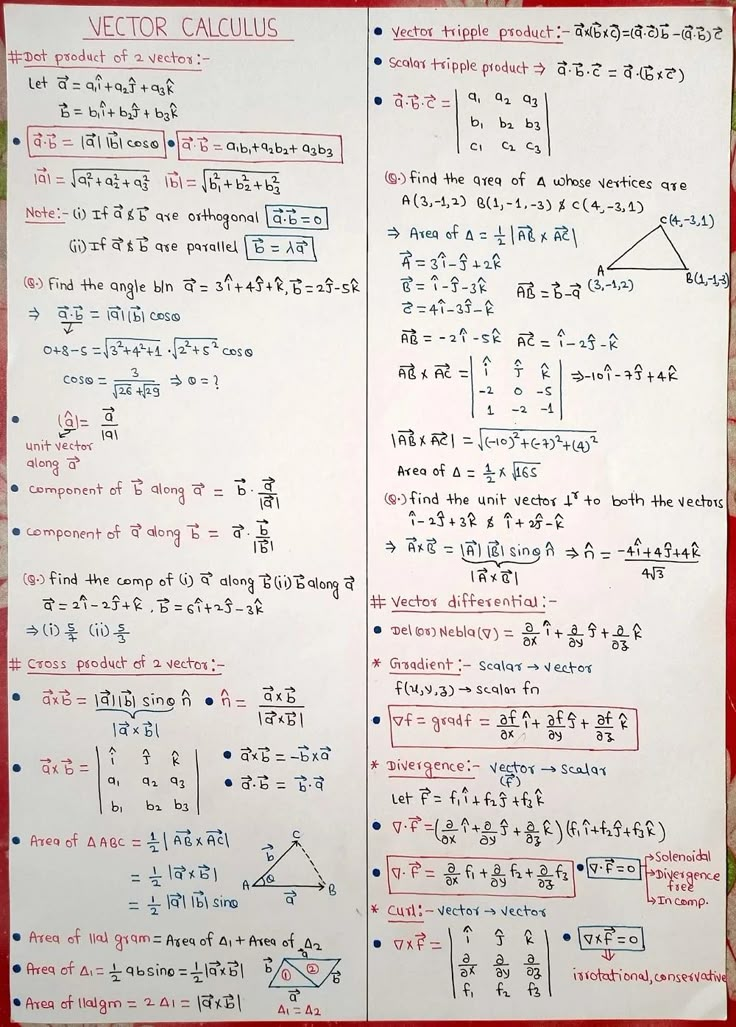 VECTOR CALCULUS
# Dot product of 2 vector:-
Let a⃗ = a₁î+a₂ĵ+a₃k̂
b⃗ = b₁î+b₂ĵ+b₃k̂
• a⃗·b⃗ = |a⃗| |b⃗| cosθ • a⃗·b⃗ = a₁b₁+a₂b₂+a₃b₃
|a⃗| = √(a₁²+a₂²+a₃²) |b⃗| = √(b₁²+b₂²+b₃²)
Note:- (i) If a⃗ & b⃗ are orthogonal a⃗·b⃗=0
(ii) If a⃗ & b⃗ are parallel b⃗ = λa⃗
(Q.) Find the angle b/n a⃗ = 3î+4ĵ+k̂, b⃗=2ĵ-5k̂
⇒ a⃗·b⃗ = |a⃗||b⃗| cosθ
0+8-5=√(3²+4²+1) · √(2²+5²) cosθ
cosθ = 3/(√26 +√29) ⇒ θ=?
• (â)= a⃗/|a|
unit vector
along a⃗
• component of b⃗ along a⃗ = b⃗ · a⃗/|a⃗|
• component of a⃗ along b⃗ = a⃗ · b⃗/|b⃗|
(Q.) find the comp of (i) a⃗ along b⃗ (ii) b⃗ along a⃗
a⃗ = 2î-2ĵ+k̂, b⃗ = 6î+2ĵ-3k̂
⇒ (i) 5/7 (ii) 5/3
# Cross product of 2 vector:-
• a⃗×b⃗ = |a⃗||b⃗| sinθ n̂ • n̂ = a⃗×b⃗/|a⃗×b⃗|
|a⃗×b⃗|
• a⃗×b⃗ = | î ĵ k̂ | • a⃗×b⃗ = -b⃗×a⃗
| a₁ a₂ a₃ | • a⃗·b⃗ = b⃗·a⃗
| b₁ b₂ b₃ |
• Area of ΔABC = 1/2 |AB⃗×AC⃗|
= 1/2 |a⃗×b⃗|
= 1/2 |a⃗| |b⃗| sinθ
C
b⃗
A θ B
a⃗
• Area of llal gram = Area of Δ₁ + Area of Δ₂
• Area of Δ₁ = 1/2 ab sinθ = 1/2 |a⃗×b⃗|
• Area of llalgm = 2Δ₁ = |a⃗×b⃗|
a⃗
b⃗ ① ② b⃗
a⃗
Δ₁ = Δ₂
• Vector tripple product:- a⃗×(b⃗×c⃗)=(a⃗·c⃗)b⃗-(a⃗·b⃗)c⃗
• Scalar tripple product ⇒ a⃗·b⃗·c⃗ = a⃗·(b⃗×c⃗)
• a⃗·b⃗·c⃗ = | a₁ a₂ a₃ |
| b₁ b₂ b₃ |
| c₁ c₂ c₃ |
(Q.) find the area of Δ whose vertices are
A(3,-1,2) B(1,-1,-3) & C(4,-3,1)
⇒ Area of Δ = 1/2 |AB⃗ × AC⃗|
A⃗ = 3î-ĵ+2k̂
B⃗ = î-ĵ-3k̂ AB⃗ = b⃗-a⃗
c⃗ = 4î-3ĵ-k̂
C(4,-3,1)
A (3,-1,2) B(1,-1,-3)
AB⃗ = -2î-5k̂ AC⃗ = î-2ĵ-k̂
AB⃗ × AC⃗ = | î ĵ k̂ | ⇒ -10î-7ĵ+4k̂
| -2 0 -5 |
| 1 -2 -1 |
|AB⃗×AC⃗| = √((-10)²+(-7)²+(4)²
Area of Δ = 1/2 × √165
(Q.) find the unit vector ⊥ʳ to both the vectors
î-2ĵ+3k̂ & î+2ĵ-k̂
⇒ A⃗×B⃗ = |A⃗| |B⃗| sinθ n̂ ⇒ n̂ = (-4î+4ĵ+4k̂)/(4√3)
|A⃗×B⃗|
# Vector differential:-
• Del (or) Nebla(∇) = ∂/∂x î + ∂/∂y ĵ + ∂/∂z k̂
* Gradient:- Scalar → vector
f(x,y,z) → scalar fn
• ∇f = gradf = ∂f/∂x î + ∂f/∂y ĵ + ∂f/∂z k̂
* Divergence:- vector → scalar
(f⃗)
Let f⃗ = f₁î+f₂ĵ+f₃k̂
• ∇·f⃗ = (∂/∂x î + ∂/∂y ĵ + ∂/∂z k̂) (f₁î+f₂ĵ+f₃k̂)
• ∇·f⃗ = ∂/∂x f₁ + ∂/∂y f₂ + ∂/∂z f₃ • ∇·f⃗=0
→Solenoidal
→Divergence
free
→Incomp.
* Curl:- vector → vector
• ∇×f⃗ = | î ĵ k̂ | • ∇×f⃗=0
| ∂/∂x ∂/∂y ∂/∂z |
| f₁ f₂ f₃ |
irrotational, conservative